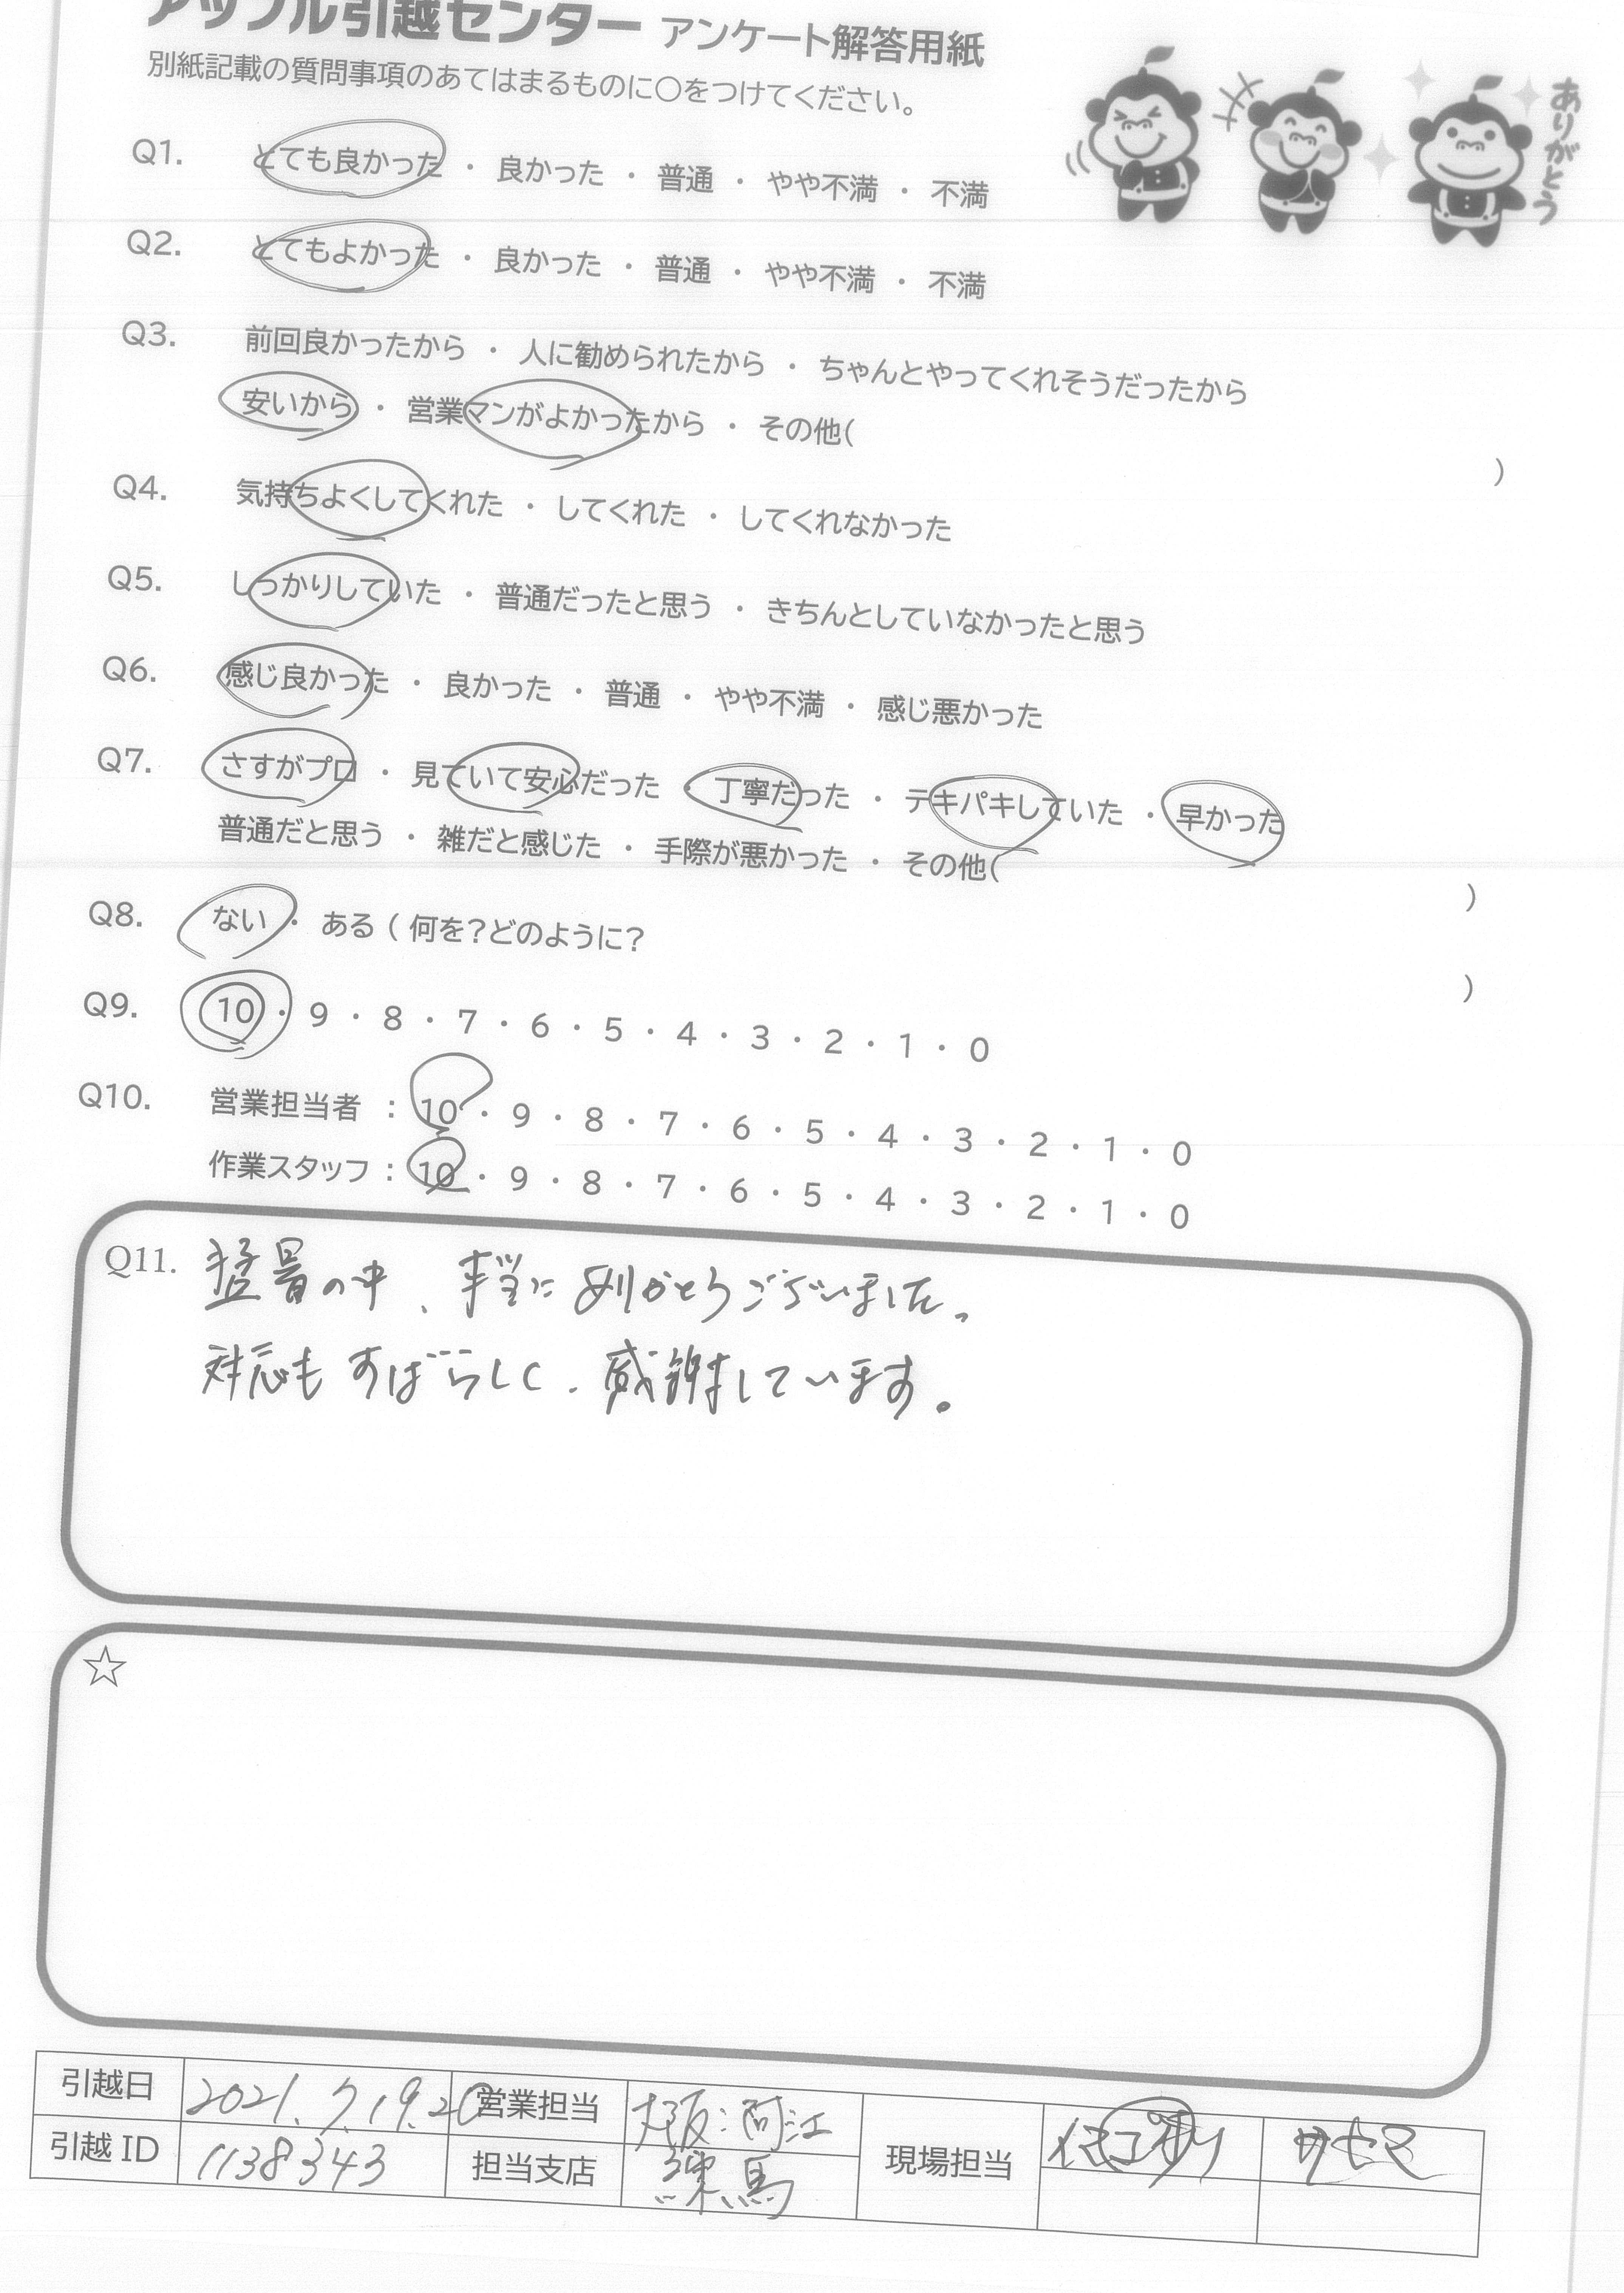 アップル引越センター アンケート解答用紙
別紙記載の質問事項のあてはまるものに〇をつけてください。
ありがとう
Q1. とても良かった ・ 良かった ・ 普通 ・ やや不満 ・ 不満
Q2. とてもよかった ・ 良かった ・ 普通 ・ やや不満 ・ 不満
Q3. 前回良かったから ・ 人に勧められたから ・ ちゃんとやってくれそうだったから
安いから ・ 営業マンがよかったから ・ その他( )
Q4. 気持ちよくしてくれた ・ してくれた ・ してくれなかった
Q5. しっかりしていた ・ 普通だったと思う ・ きちんとしていなかったと思う
Q6. 感じ良かった ・ 良かった ・ 普通 ・ やや不満 ・ 感じ悪かった
Q7. さすがプロ ・ 見ていて安心だった ・ 丁寧だった ・ テキパキしていた ・ 早かった
普通だと思う ・ 雑だと感じた ・ 手際が悪かった ・ その他( )
Q8. ない ・ ある ( 何を?どのように? )
Q9. 10 ・ 9 ・ 8 ・ 7 ・ 6 ・ 5 ・ 4 ・ 3 ・ 2 ・ 1 ・ 0
Q10. 営業担当者 : 10 ・ 9 ・ 8 ・ 7 ・ 6 ・ 5 ・ 4 ・ 3 ・ 2 ・ 1 ・ 0
作業スタッフ : 10 ・ 9 ・ 8 ・ 7 ・ 6 ・ 5 ・ 4 ・ 3 ・ 2 ・ 1 ・ 0
Q11. 猛暑の中、本当にありがとうございました。
対応もすばらしく、感謝しています。
☆
引越日 2021.7.19.20 営業担当 大阪:河江
引越 ID 1138343 担当支店 練馬 現場担当